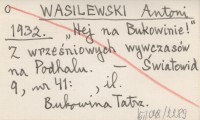 WASILEWSKI Antoni
1932. „Hej na Bukowinie!"
Z wrześniowych wywczasów
na Podhalu. – Światowid
9, nr 41: , il.
Bukowina Tatrz.